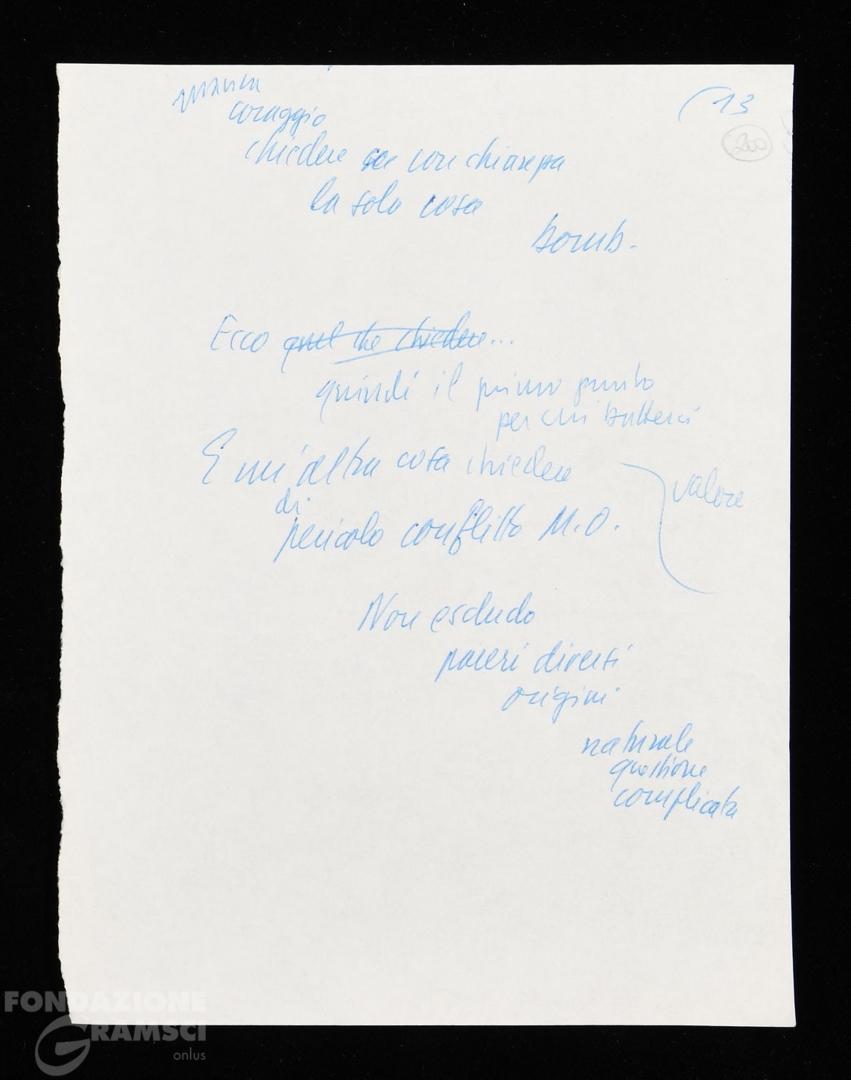 manca
coraggio
chiedere con chiarezza
la sola cosa
bomb.
(13
200
Ecco quel che chiedere...
quindi il primo punto
per cui batterci
E un'altra cosa chiedere
di
pericolo conflitto M.O.
valore
Non escludo
pareri diversi
origini
naturale
questione
complicata
FONDAZIONE
GRAMSCI
onlus